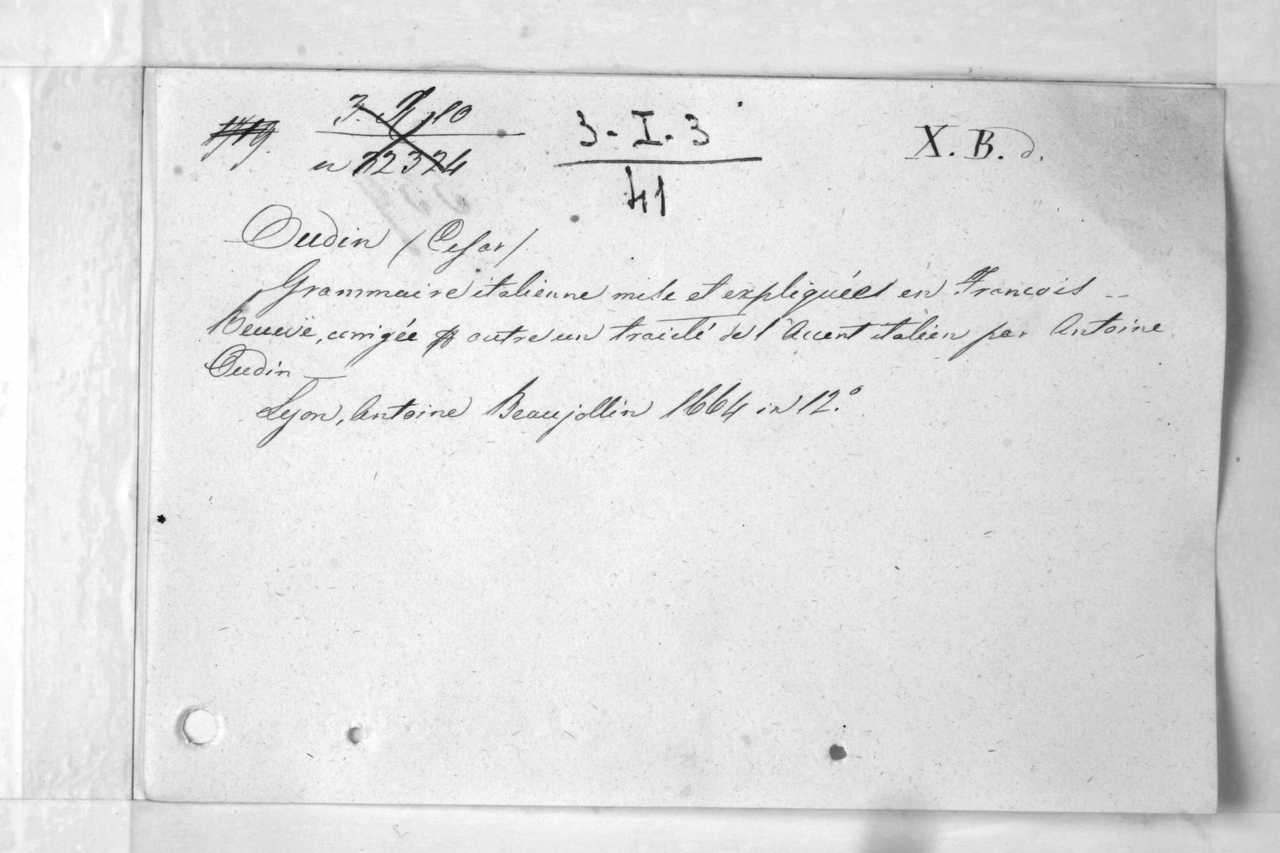 3-I-3 X.B.d.
41
Oudin (Cesar)
Grammaire italienne mise et expliquées en François --
Reueüe, corrigée outre un traicté de l'Accent italien par Antoine
Oudin —
Lyon, Antoine Beaujollin 1664 in 12.°